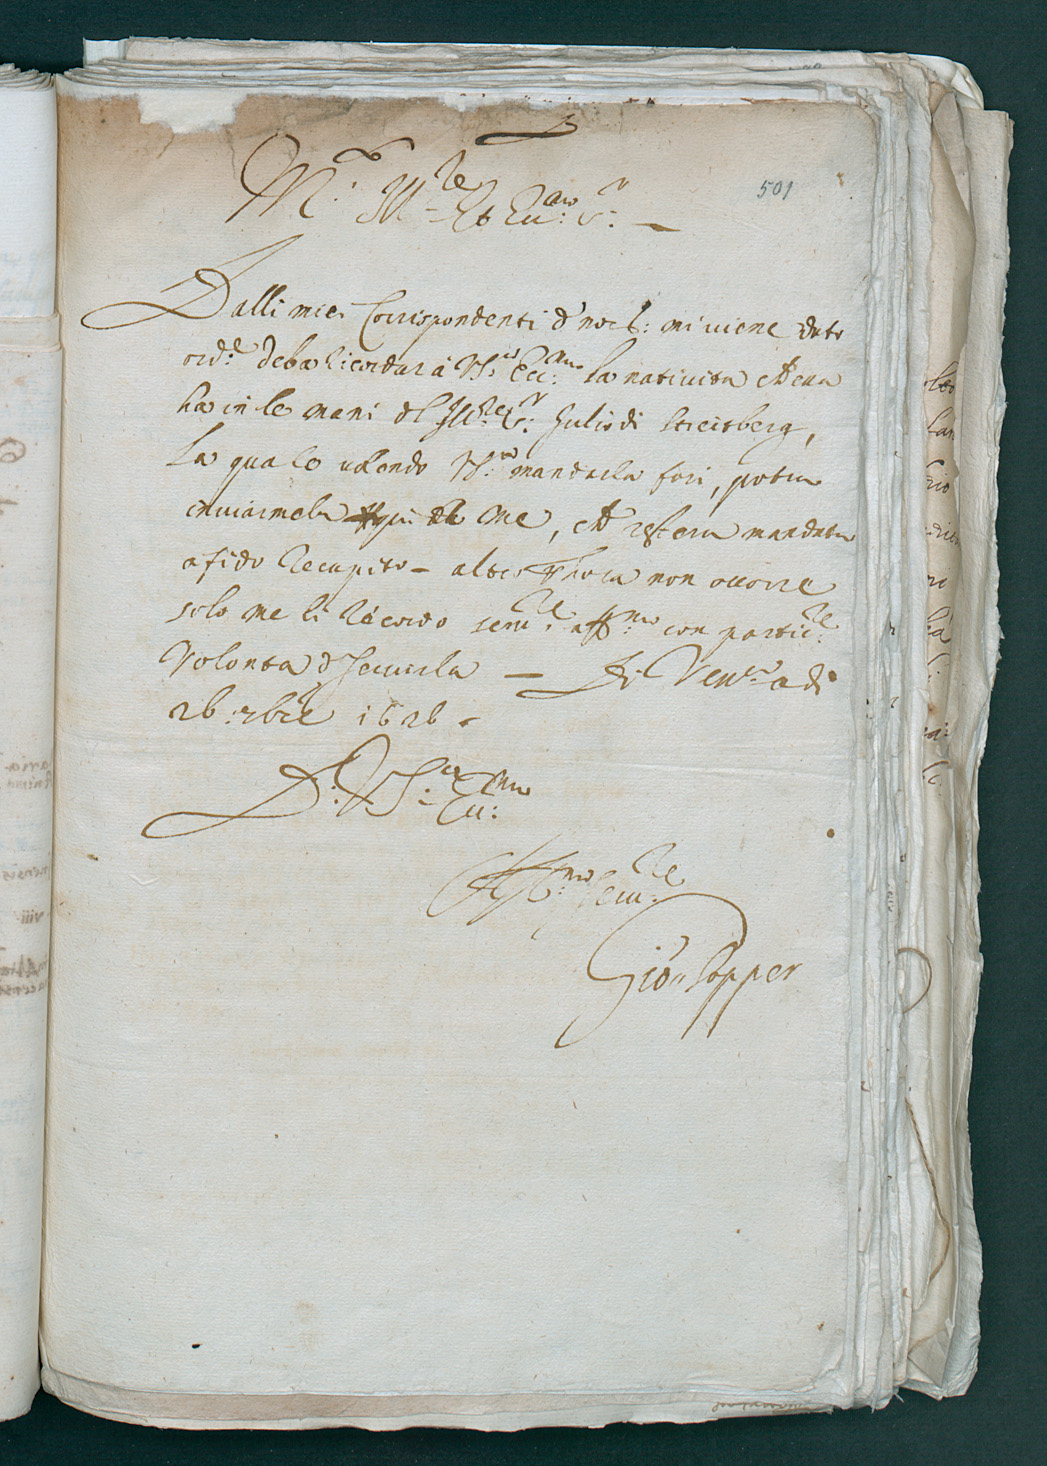 501
M.to Ill.re et Ecc.mo S.r
Dalli miei Correspondenti d' mi viene dato
ord.e deba ricordar a V.S. Ecc.ma la nativita che ella
ha in le mani del Ill.re S.r Julio di Streitberg,
La quale volendo V.S. mandarla fori, potra
inviarmela qui a me, che restera mandata
a fido recapito - altro non occorre
solo me li ricordo ser.re aff.mo con partic.re
Volonta d servirla — Di Ven.a adi
26: 1626 -
D. V.S. Ecc.ma
Aff.mo Ser.re
Gio: Popper